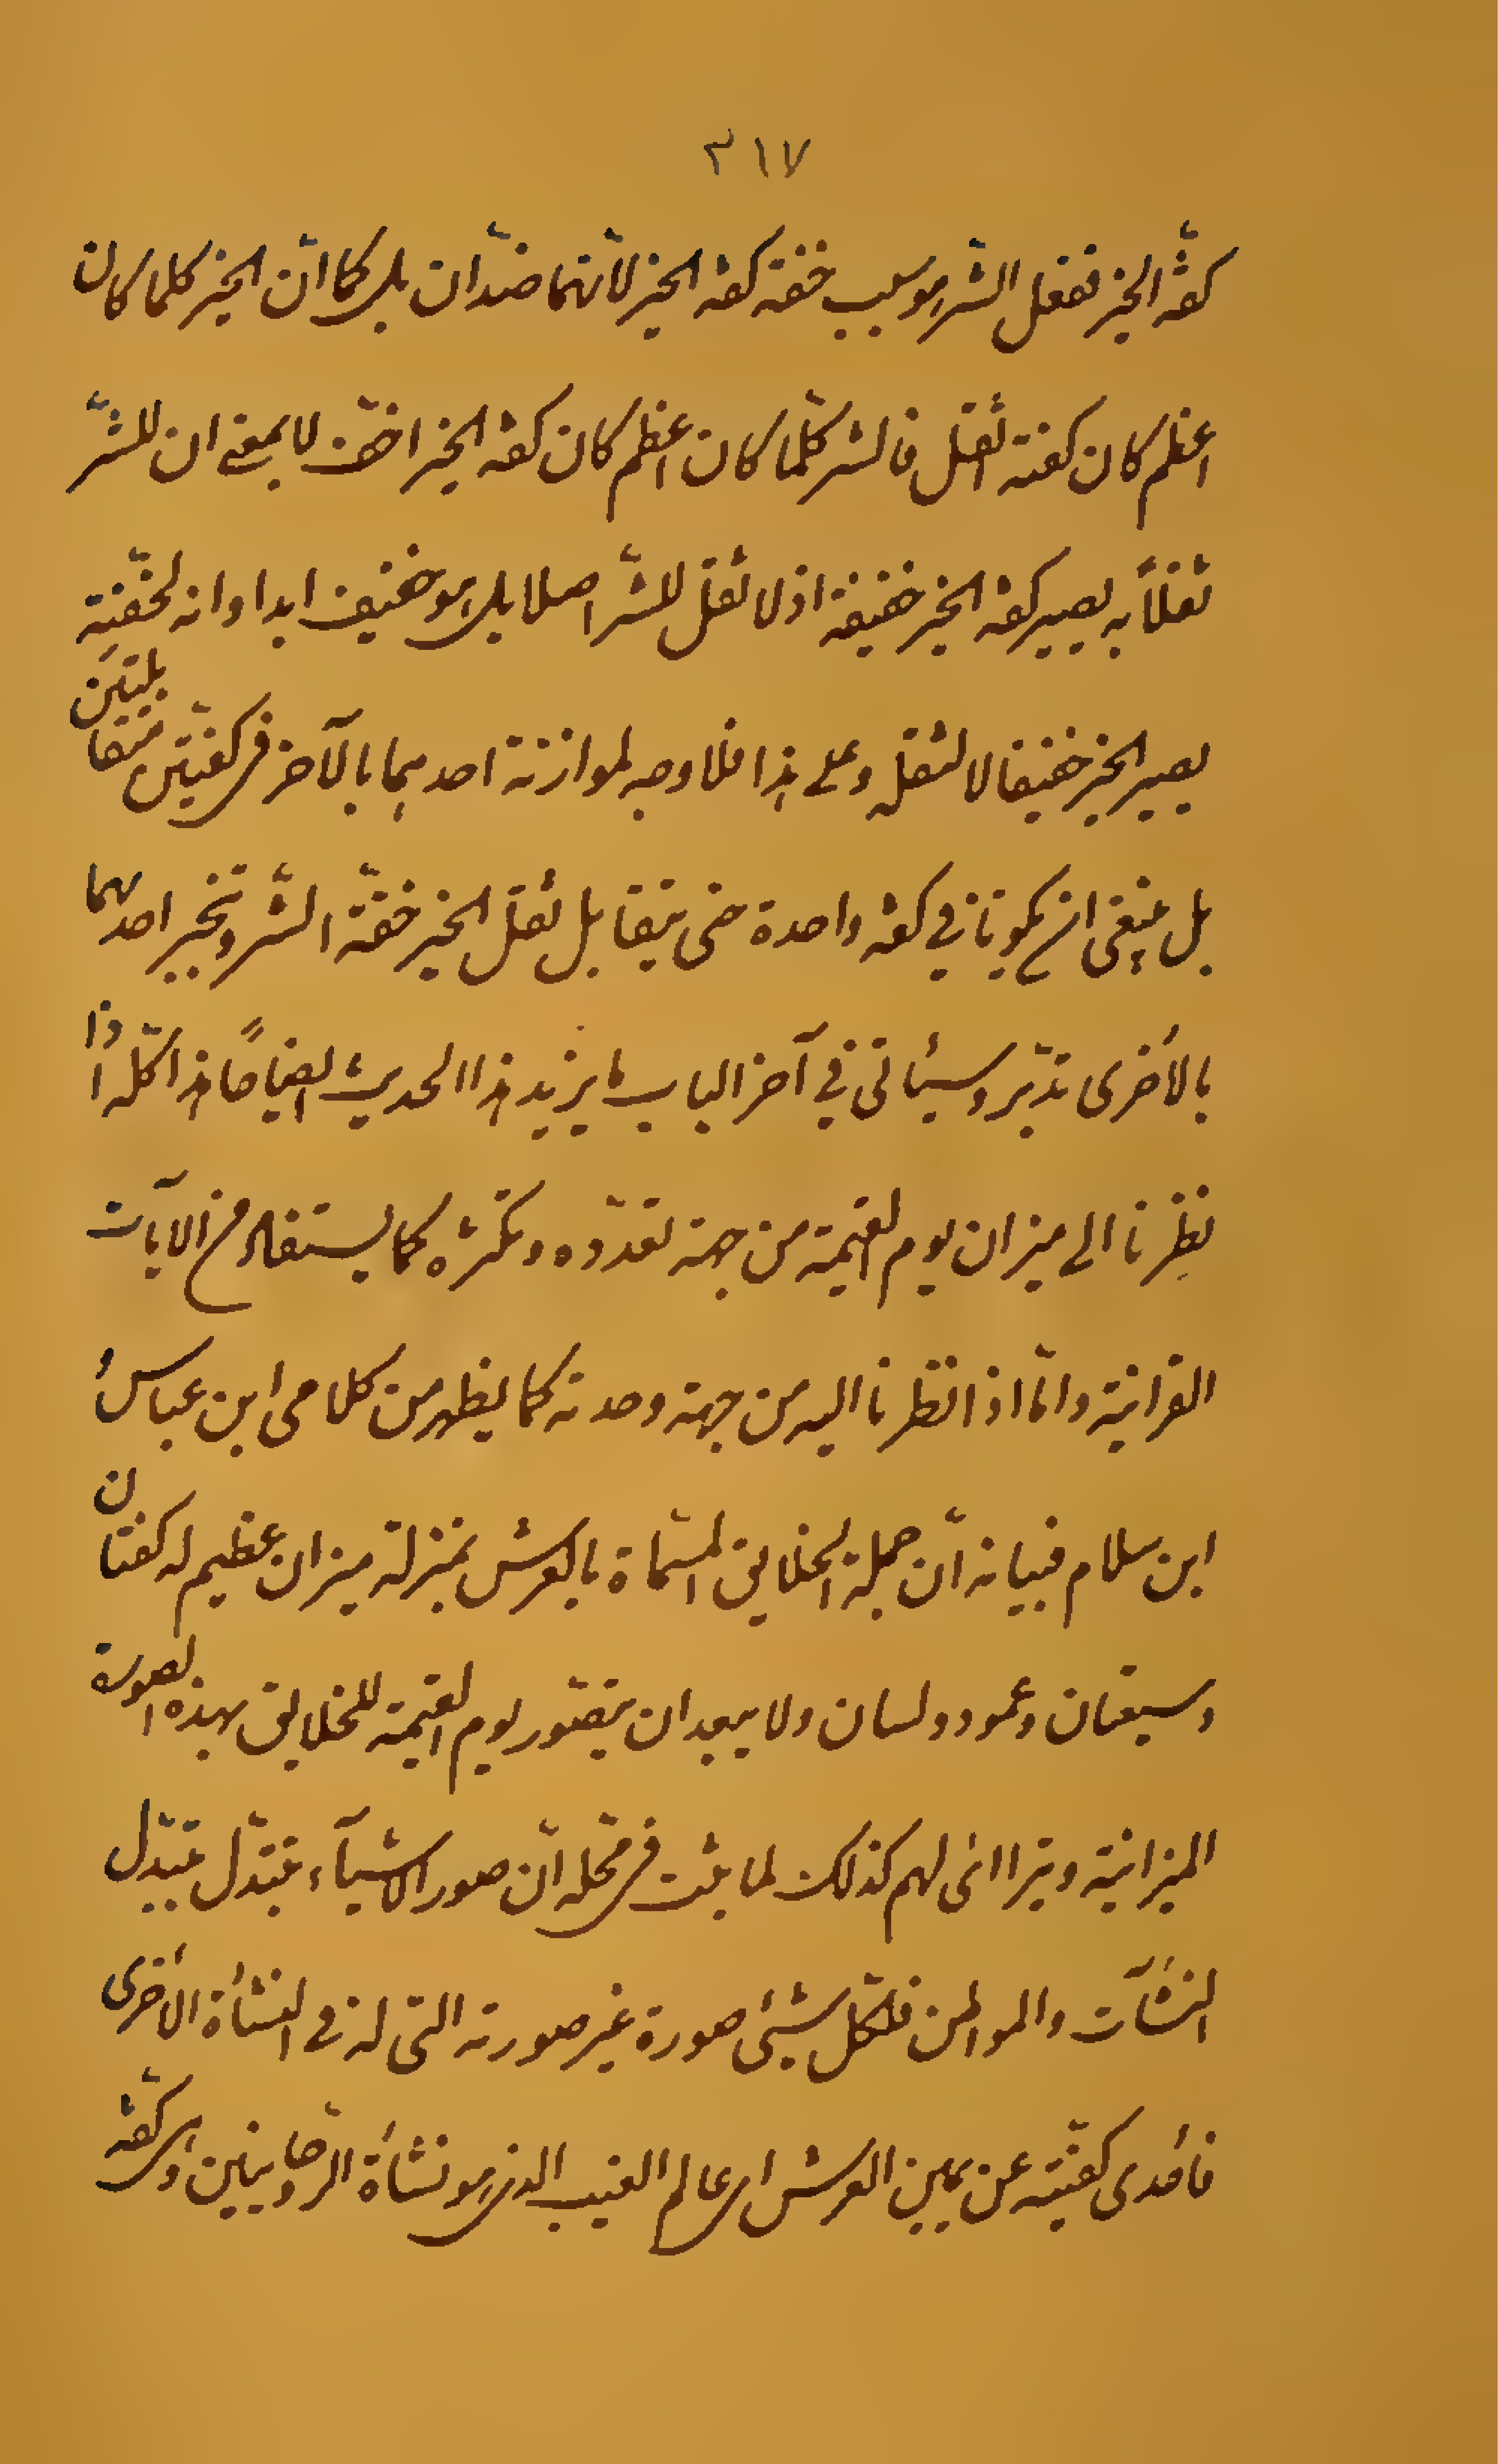 ٣١٧
كفّة الخير ففعل الشّر هو سبب خفة كفة الخير لأنّهما ضدّان بل كما انّ الخير كلما كان
اعظم كان كفته اثقل فالشر كلّما كان اعظم كان كفة الخير اخفّ لا بمعنى ان للشّر
ثقلاً به يصير كفة الخير خفيفة اذ لا ثقل للشّر اصلا بل هو خفيف ابدا وانه لخفّته
يصير الخير خفيفا لا لثقله وعلى هذا فلا وجه لموازنة احدهما بالآخر فى كفّتين متقابلتين
بل ينبغى ان يكونا في كفة واحدة حتى يتقابل ثقل الخير خفّة الشّر وتخير احدهما
بالأخرى تدبّر وسيأتى في آخر الباب ما يزيد هذا الحديث ايضاحًا هذا كلّه اذا
نظرنا الى ميزان يوم القيمة من جهة تعدّده وتكثره كما يستفاد من الآيات
القرانية وامّا اذا نظرنا اليه من جهة وحدته كما يظهر من كلامى ابن عباس و
ابن سلام فبيانه انّ جملة الخلايق المسّماة بالعرش بمنزلة ميزان عظيم له كفتان
وسيقتان وعمود ولسان ولا يبعد ان يتصّور يوم القيمة للخلايق بهذه الصورة
الميزانية ويتراائى لهم كذلك لما يثبت فى محّله انّ صور الاشيآء تتبدّل بتبدّل
النشآت والمواطن فلكلّ شيئ صورة غير صورته التى له في النشأة الأخرى
فأحدى كفّتيه عن يمين العرش اى عالم الغيب الذى هو نشأة الرّوحانيين وهى كفّة